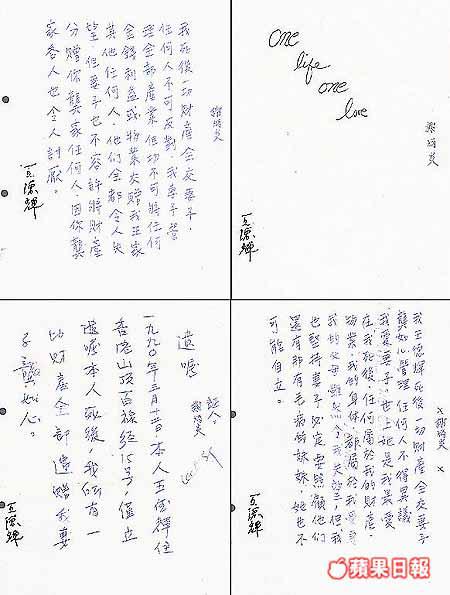 謝炳炎
我死後一切財產全交妻子，
任何人不可反對，我妻子管
理全部產業但切不可將任何
金錢利益或物業交贈我王家
其他任何人，他們全都令人失
望，但妻子也不容許將財產
分贈你龔家任何人，因你龔
家各人也令人討厭。
王德輝
one
life
one
love
謝炳炎
王德輝
証人：
謝炳炎
遺囑
一九九〇年三月十二日，本人王德輝住
香港山頂百祿徑15号，僅立
遺囑本人死後，我所有一
切財產全部遺贈我妻
子龔如心。
王德輝
x謝炳炎x
我王德輝死後一切財產全交妻子
龔如心管理任何人不得異議
我愛妻子，世上她是我最愛
在我死後，任何屬於我的財產，
物業，我的身体都屬於我愛妻
我的父母雖然令我失望，但我
也堅持妻子必定要照顧他們
還有那有毛病的妹妹，她也不
可能自立。
王德輝
蘋果日報